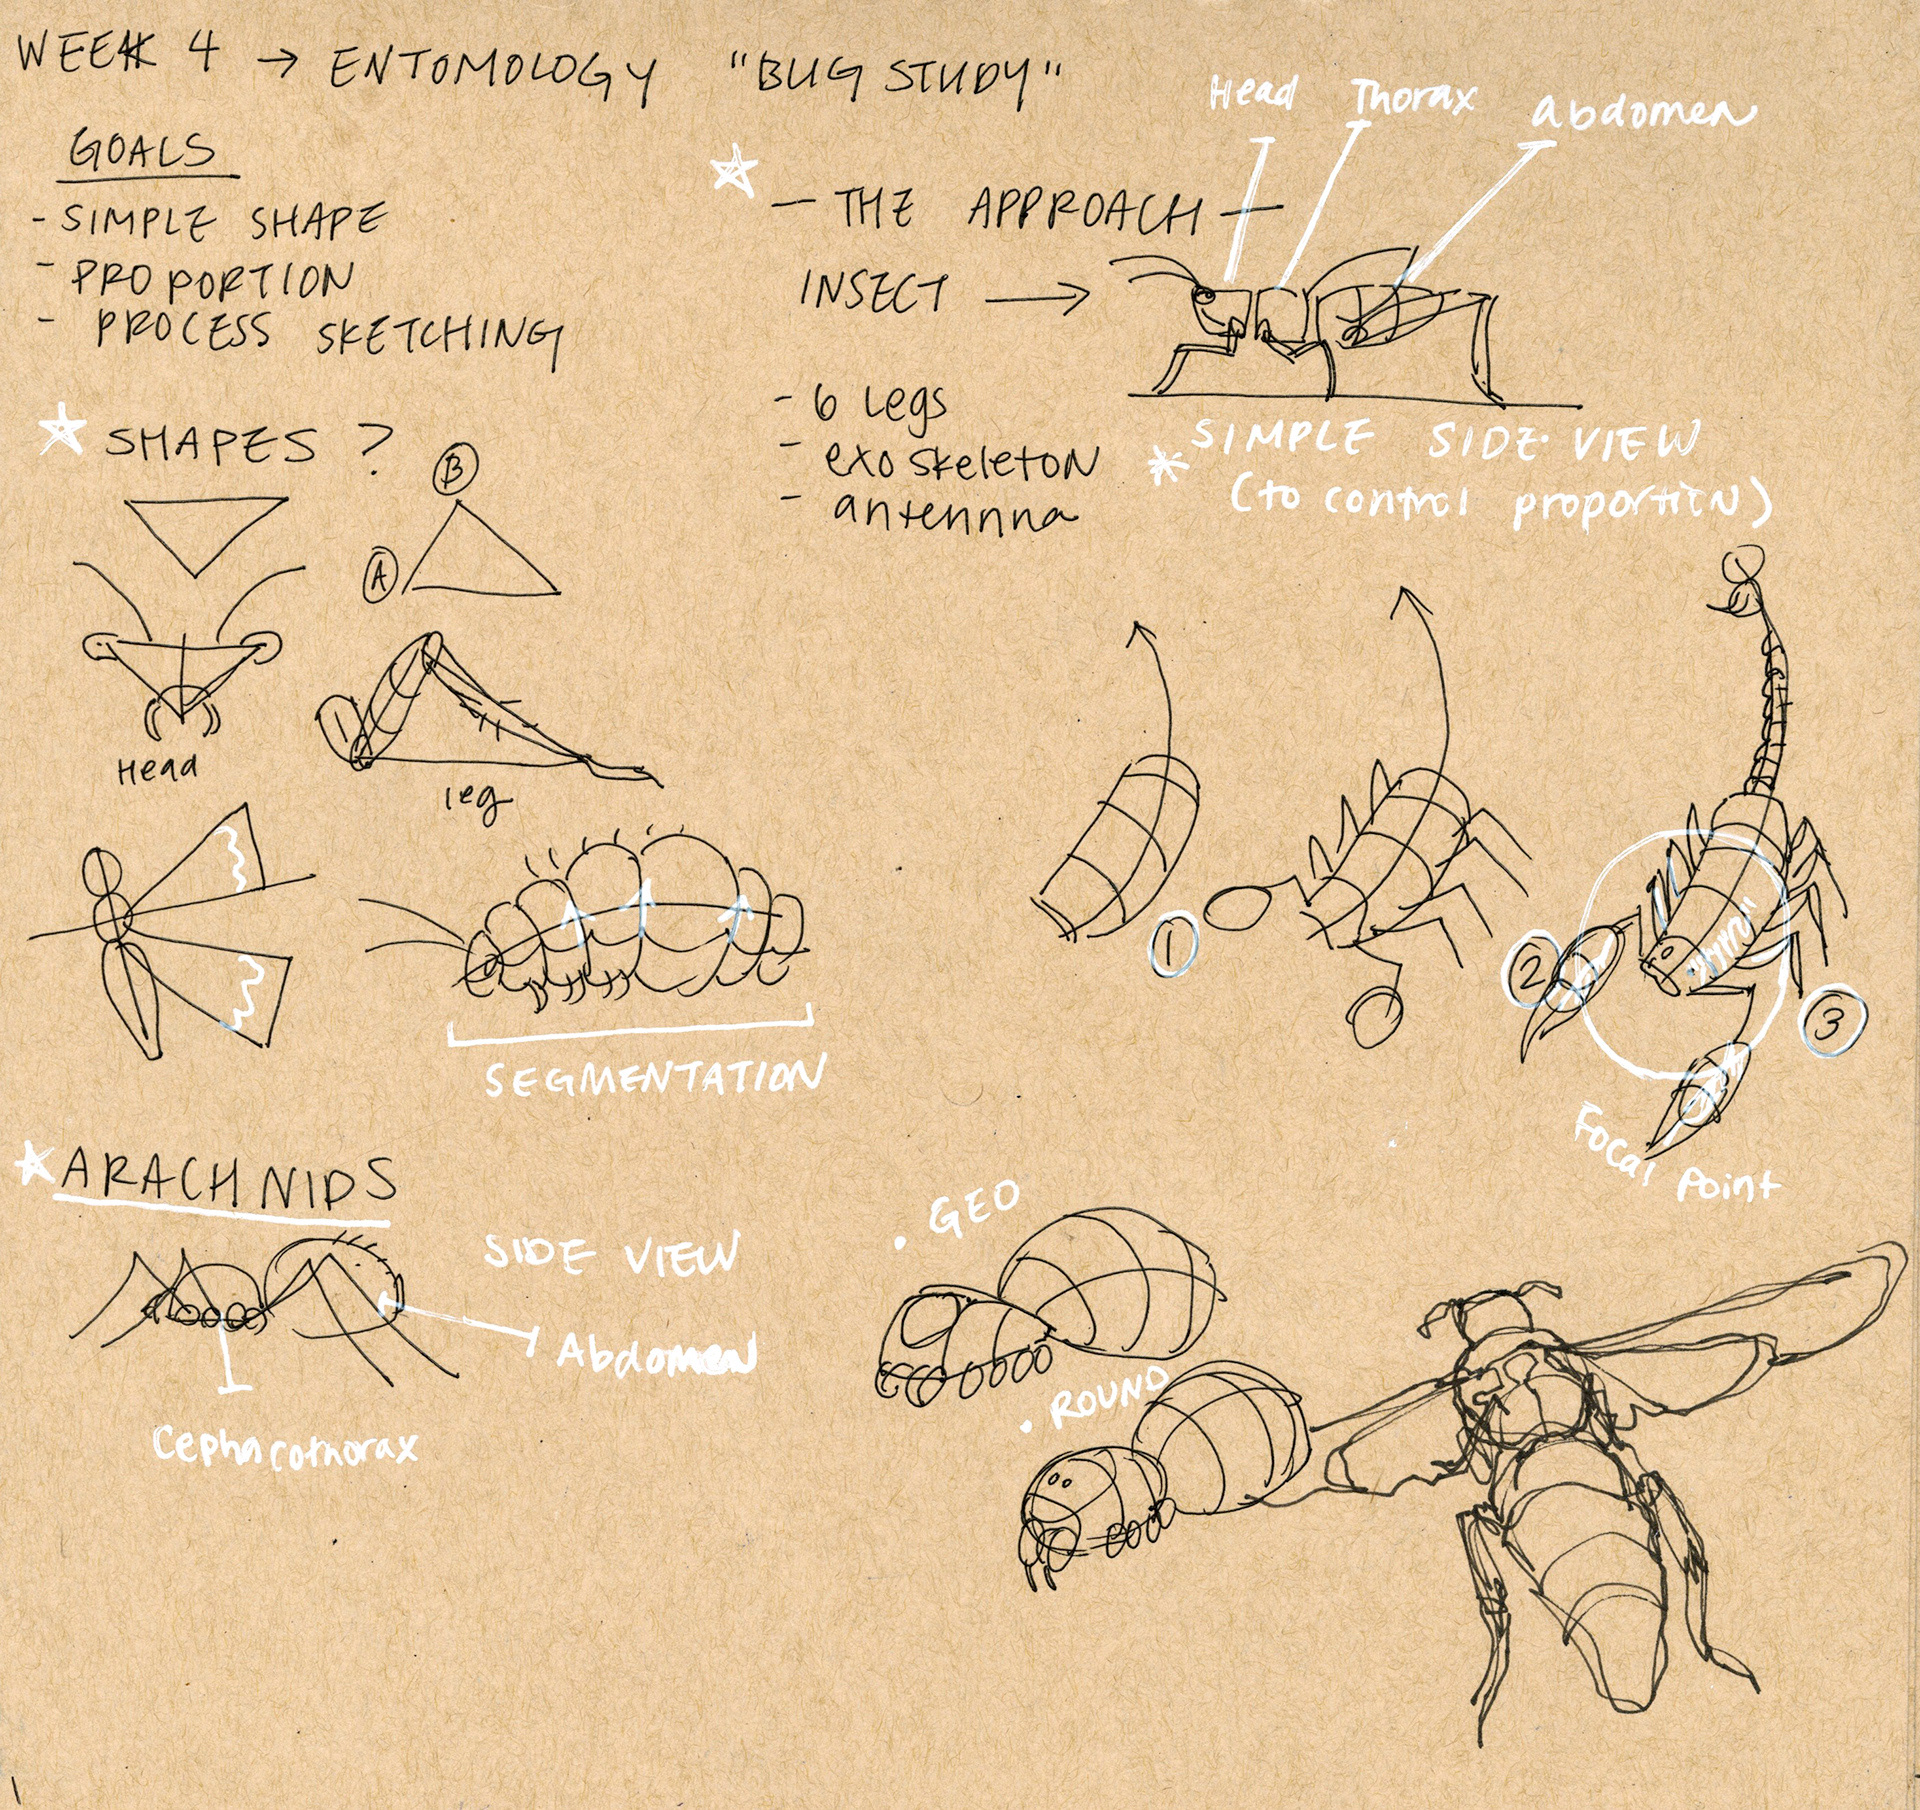 WEEK 4 → ENTOMOLOGY "BUG STUDY"
GOALS
- SIMPLE SHAPE
- PROPORTION
- PROCESS SKETCHING
SHAPES ?
B
A
Head
leg
SEGMENTATION
ARACHNIDS
SIDE VIEW
Abdomen
Cephacothorax
Head Thorax abdomen
- THE APPROACH -
INSECT →
- 6 Legs
- exoskeleton
- antennna
* SIMPLE SIDE VIEW
(to control proportion)
1
2
3
Focal Point
. GEO
. ROUND